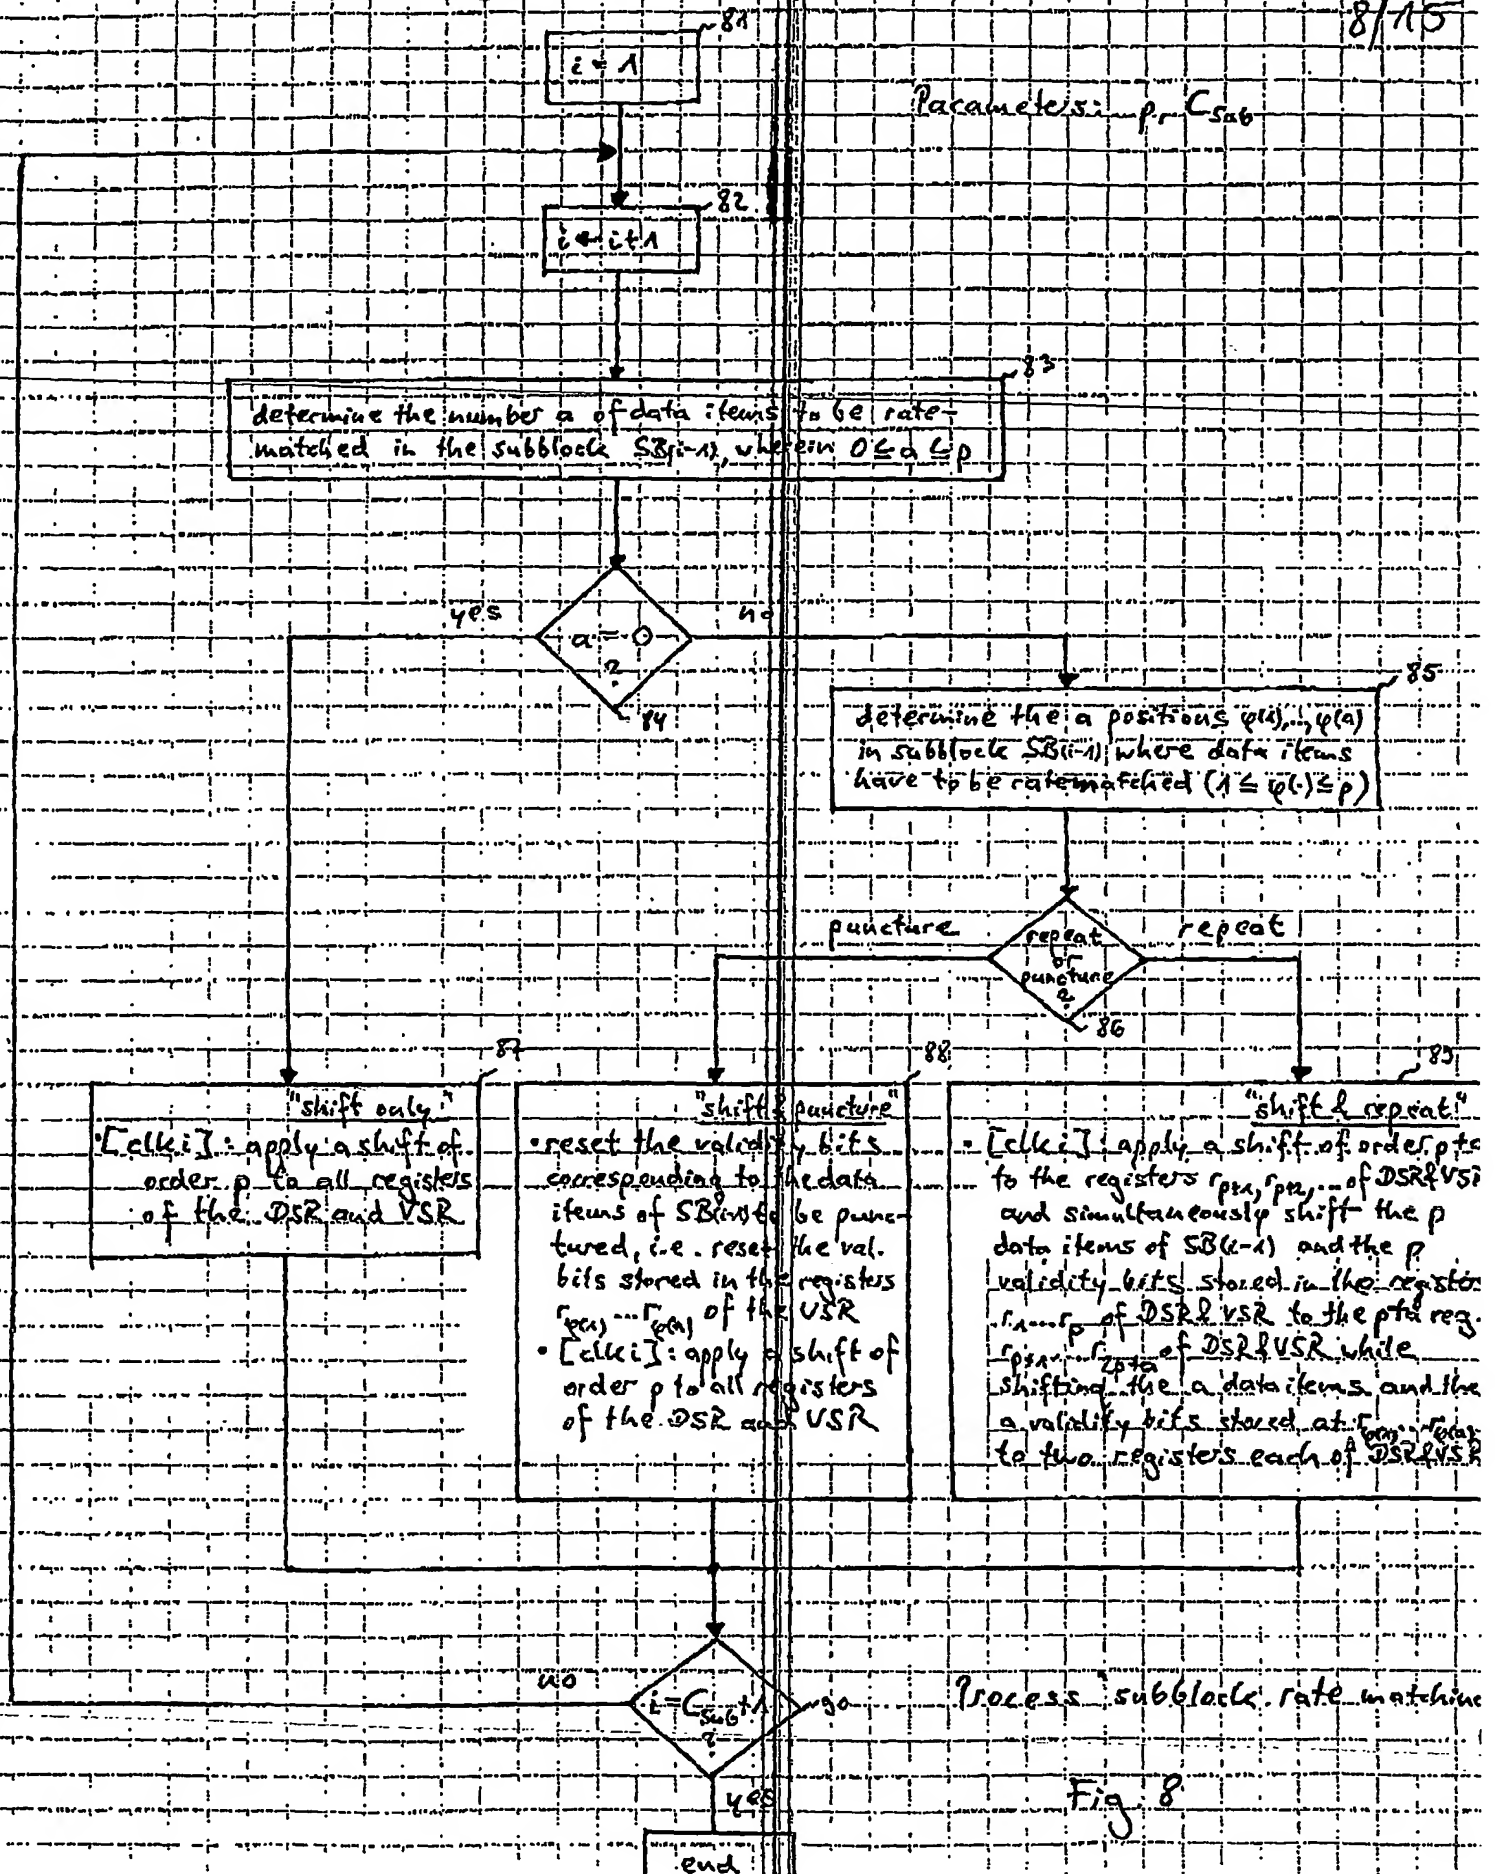 8/15
81
i = 1
Parameters: p, C_Sub
82
i ← i+1
83
determine the number a of data items to be rate-
matched in the subblock SB(i-1), wherein 0 ≤ a ≤ p
yes
no
a = 0
?
84
85
determine the a positions φ(1),...,φ(a)
in subblock SB(i-1) where data items
have to be ratematched (1 ≤ φ(.) ≤ p)
puncture
repeat
repeat
or
puncture
?
86
87
88
89
"shift only"
• [clk i]: apply a shift of
order p to all registers
of the DSR and VSR
"shift & puncture"
• reset the validity bits
corresponding to the data
items of SB(i-1) to be punc-
tured, i.e. reset the val.
bits stored in the registers
r_φ(1)...r_φ(a) of the VSR
• [clk i]: apply a shift of
order p to all registers
of the DSR and VSR
"shift & repeat"
• [clk i]: apply a shift of order p+a
to the registers r_p+1, r_p+2, ... of DSR&VSR
and simultaneously shift the p
data items of SB(i-1) and the p
validity bits stored in the register
r_1...r_p of DSR&VSR to the p+a reg.
r_p+1...r_2p+a of DSR&VSR while
shifting the a data items and the
a validity bits stored at r_φ(1)...r_φ(a)
to two registers each of DSR&VSR
no
i = C_Sub+1
?
90
Process "subblock rate matching
yes
Fig. 8
end